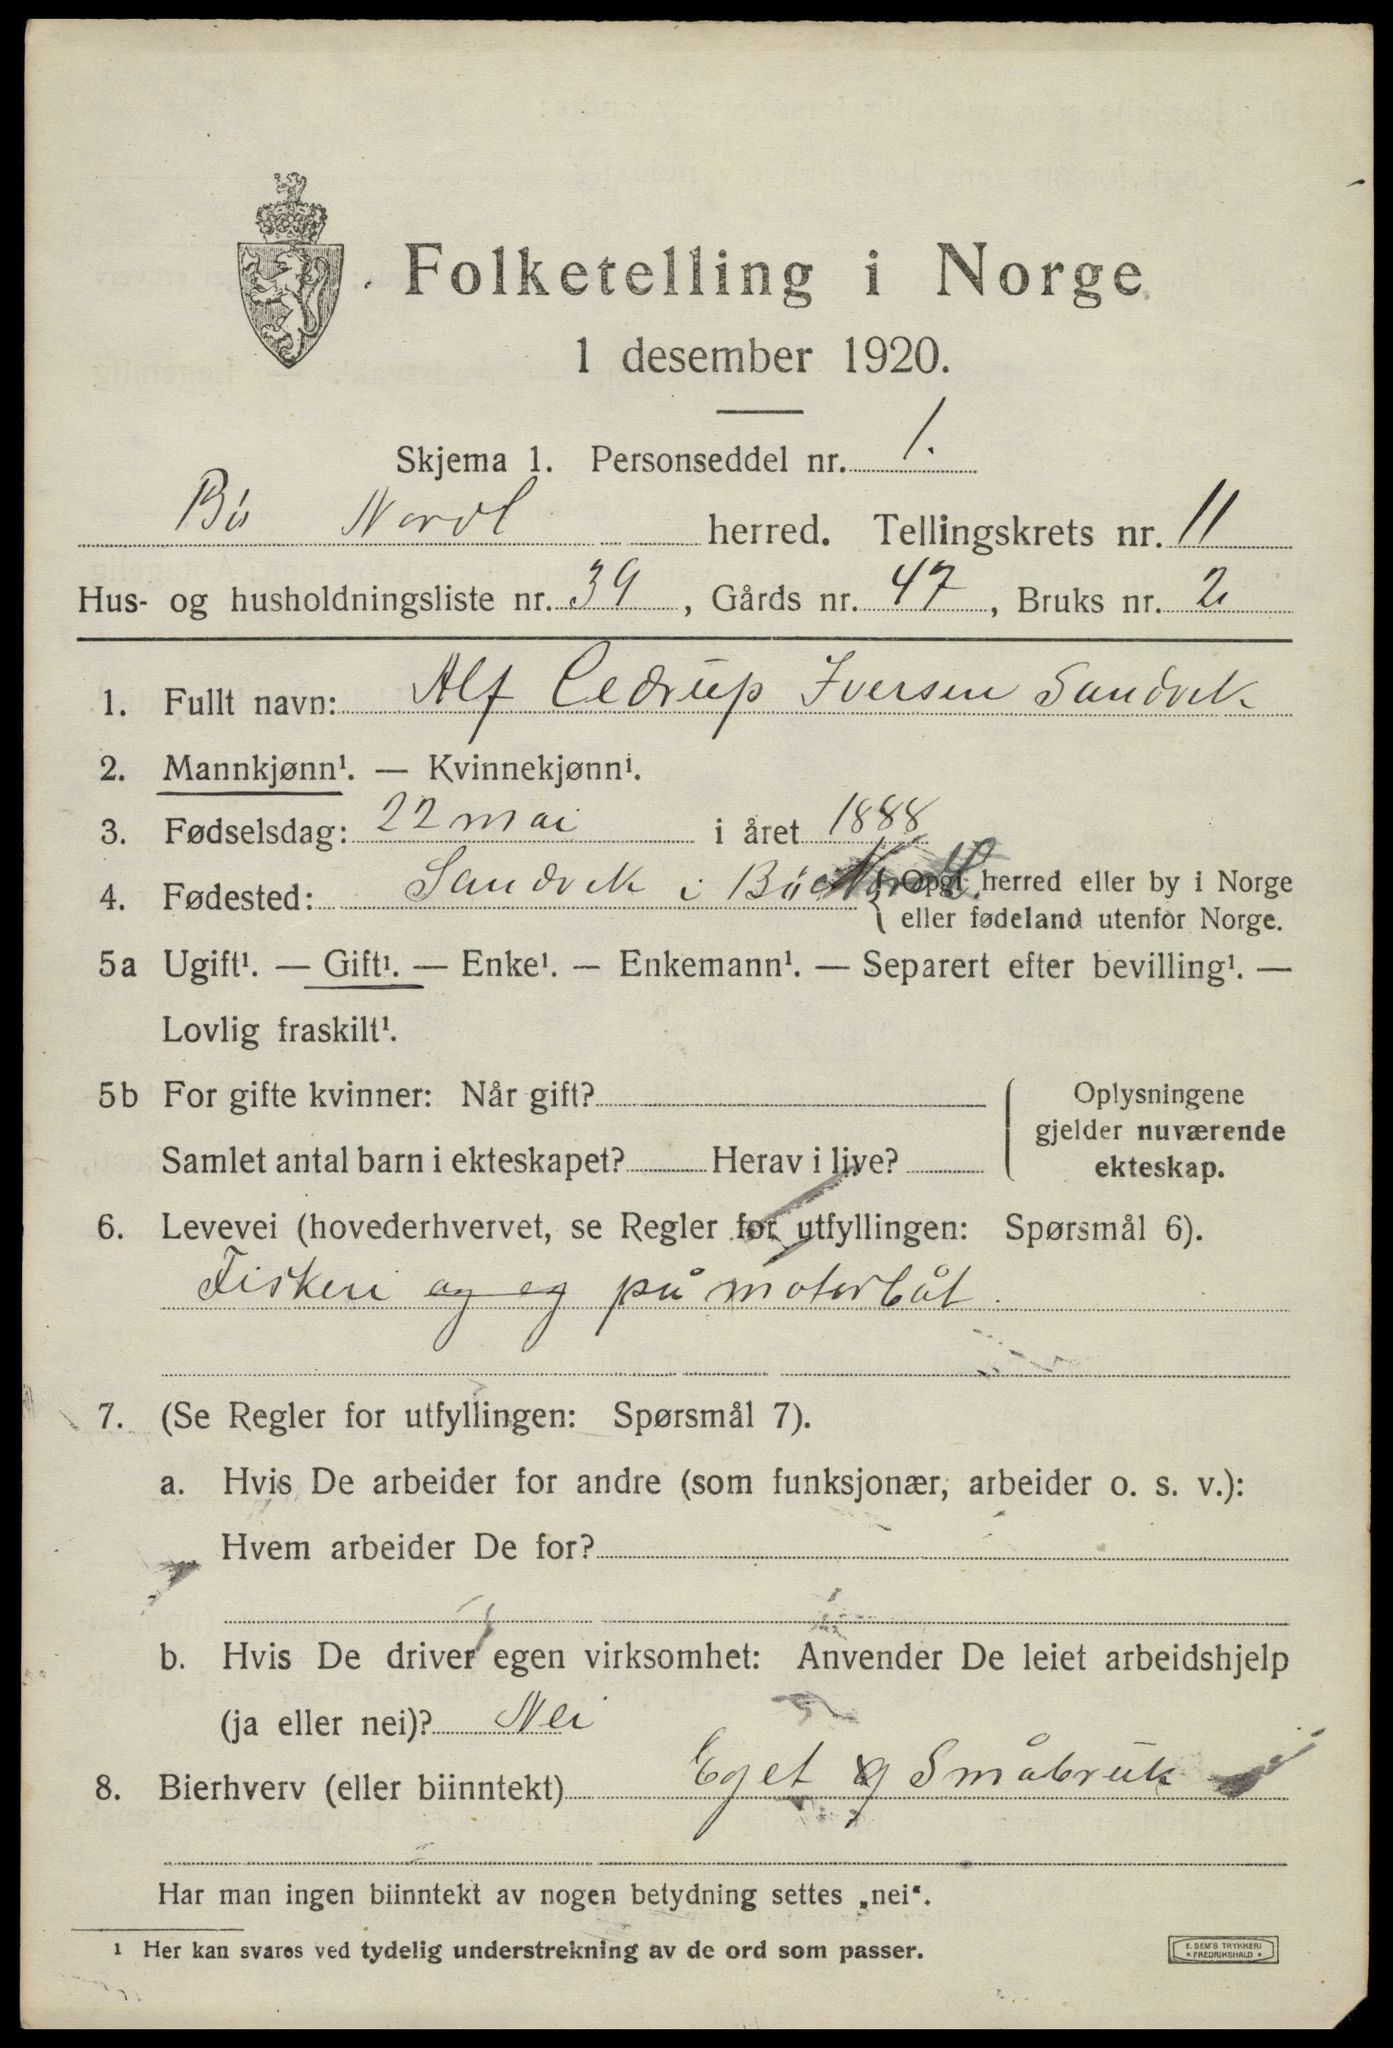 Folketelling i Norge
1 desember 1920.
Skjema 1. Personseddel nr. 1.
Bø Nordl herred. Tellingskrets nr. 11
Hus- og husholdningsliste nr. 39, Gårds nr. 47, Bruks nr. 2
1. Fullt navn: Alf Cedrup Iversen Sandvik
2. Mannkjønn¹. — Kvinnekjønn¹.
3. Fødselsdag: 22 mai i året 1888
4. Fødested: Sandvik i Bø Nordl. { Opgi herred eller by i Norge
eller fødeland utenfor Norge.
5a Ugift¹. — Gift¹. — Enke¹. — Enkemann¹. — Separert efter bevilling¹. —
Lovlig fraskilt¹.
5b For gifte kvinner: Når gift?
Samlet antal barn i ekteskapet? Herav i live?
Oplysningene
gjelder nuværende
ekteskap.
6. Levevei (hovederhvervet, se Regler for utfyllingen: Spørsmål 6).
Fiskeri og eg på motorbåt.
7. (Se Regler for utfyllingen: Spørsmål 7).
a. Hvis De arbeider for andre (som funksjonær, arbeider o. s. v.):
Hvem arbeider De for?
b. Hvis De driver egen virksomhet: Anvender De leiet arbeidshjelp
(ja eller nei)? Nei
8. Bierhverv (eller biinntekt) Eget Småbruk
Har man ingen biinntekt av nogen betydning settes „nei“.
¹ Her kan svares ved tydelig understrekning av de ord som passer.
E. SEM'S TRYKKERI
* FREDRIKSHALD *